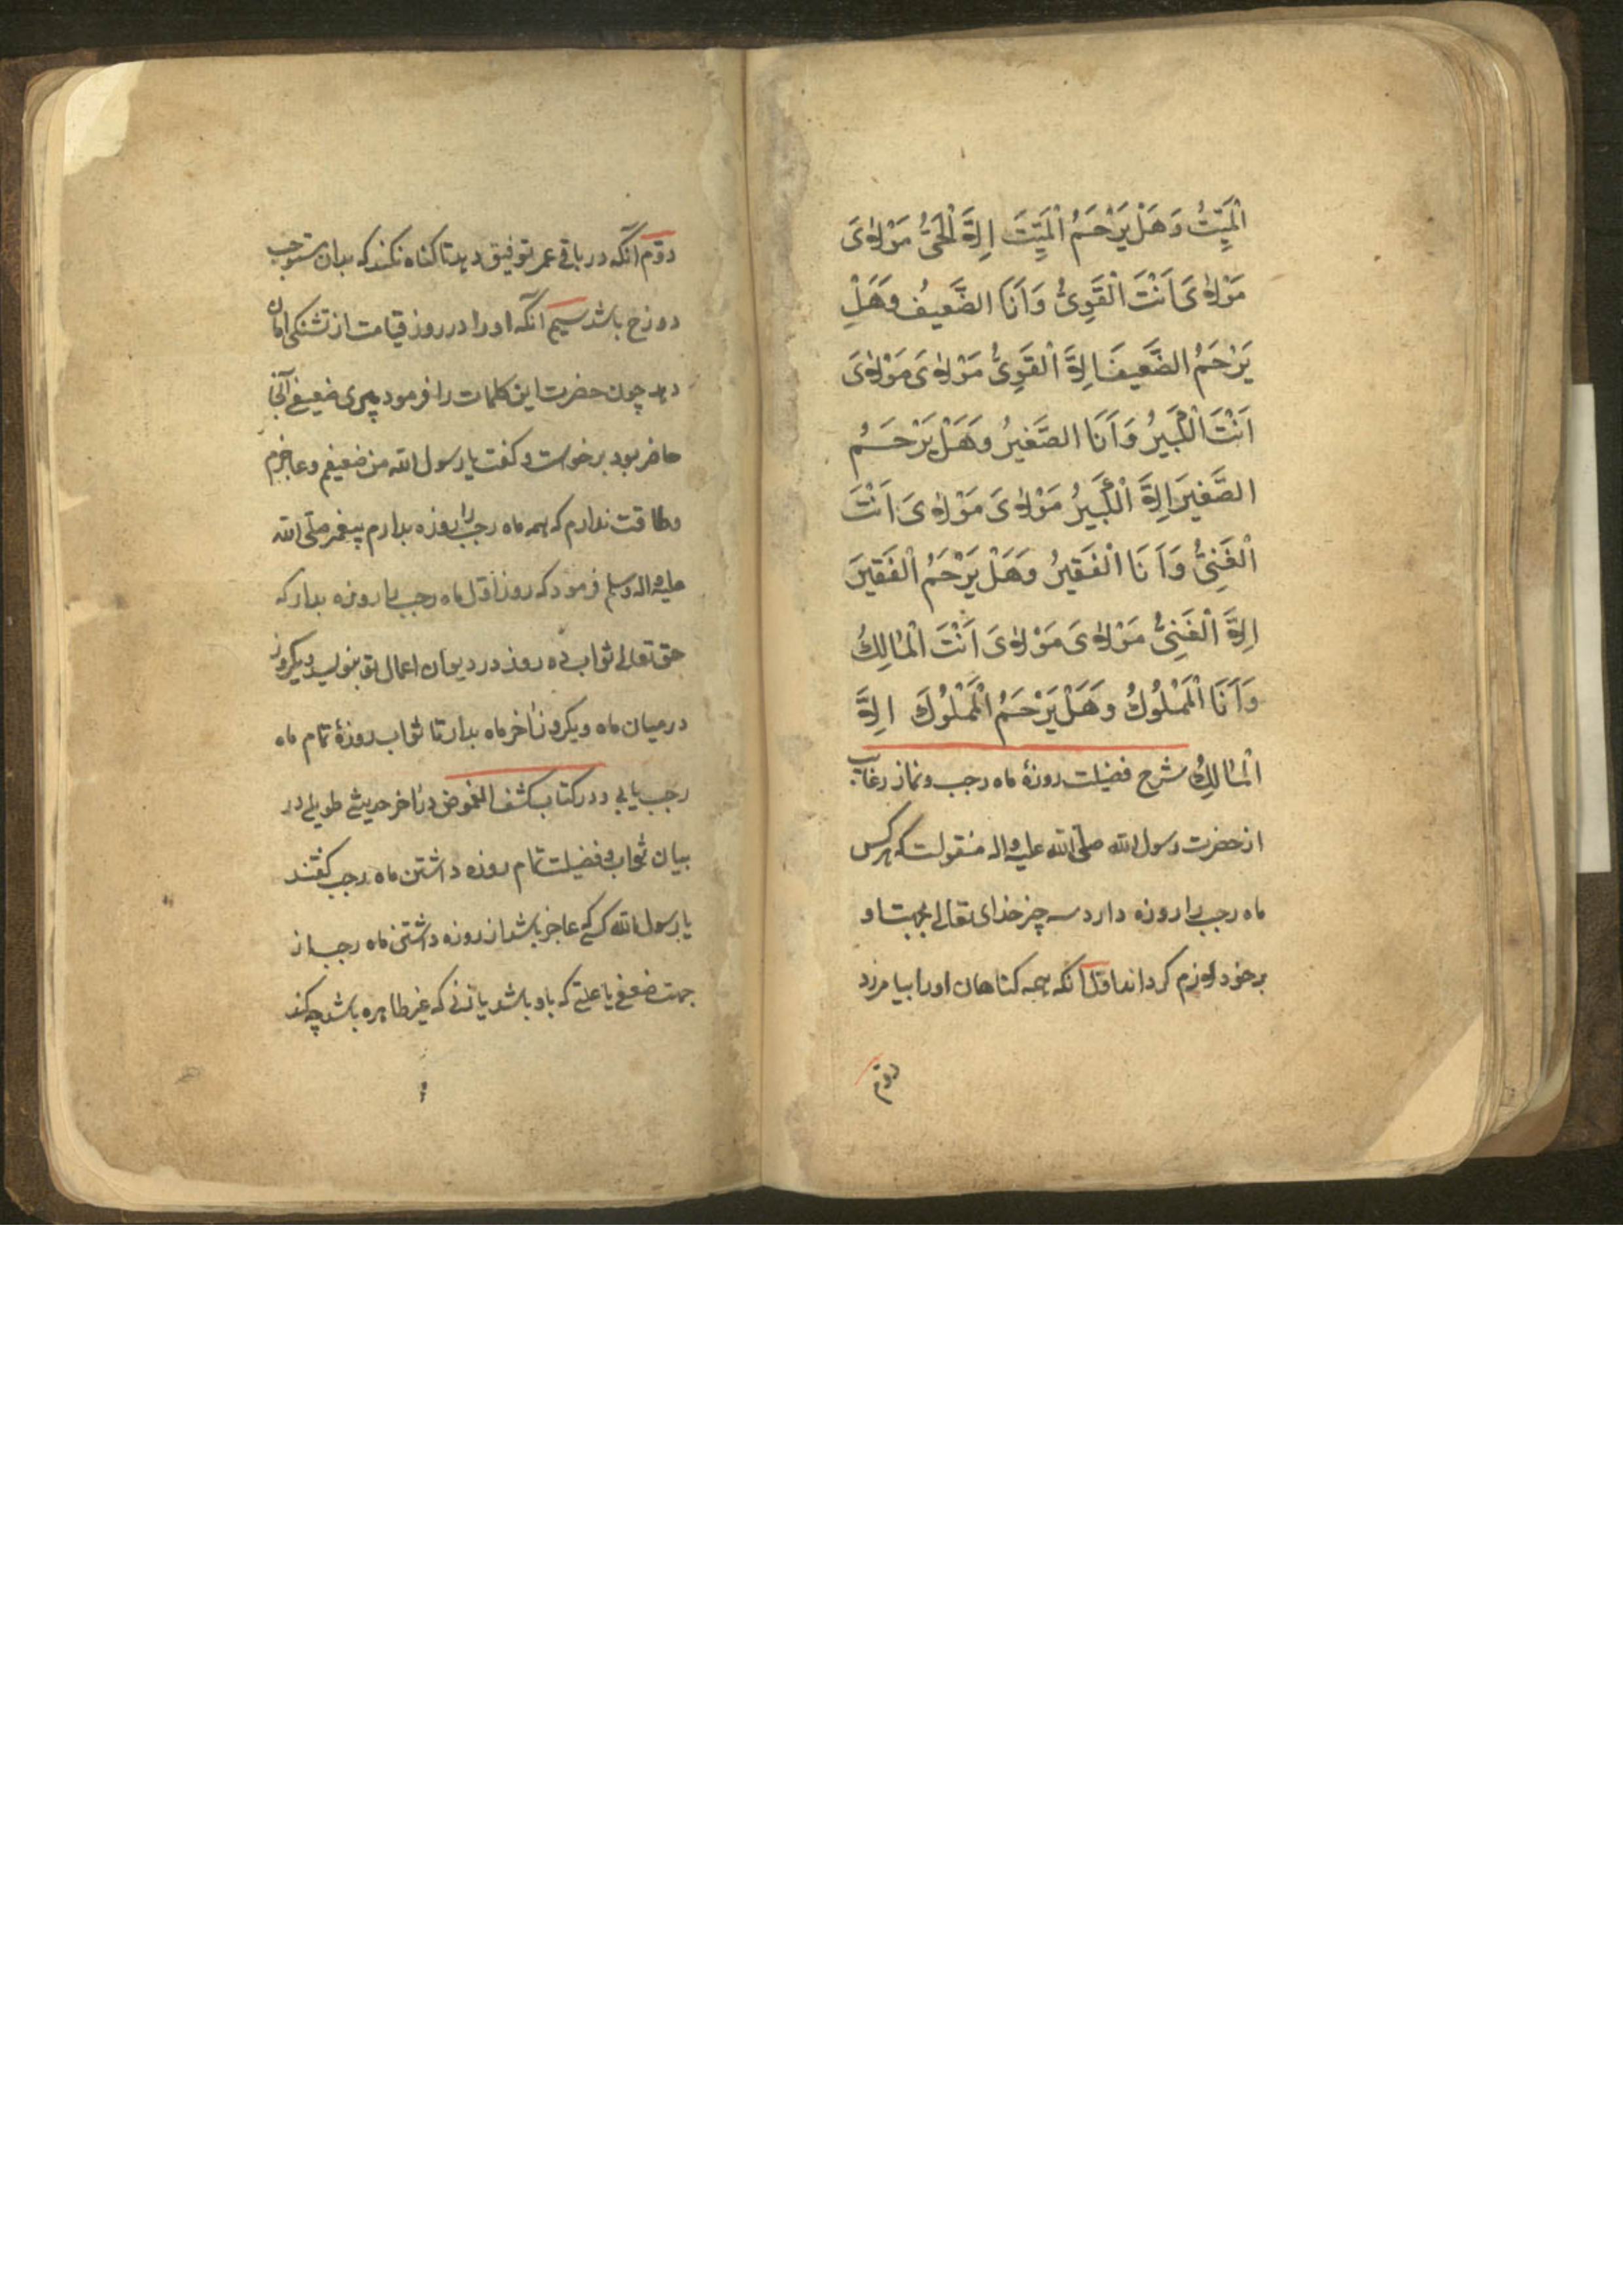 الْمَيِّتُ وَهَلْ يَرْحَمُ الْمَيِّتَ اِلَّا الْحَىُّ مَوْلاىَ
مَوْلاىَ اَنْتَ الْقَوِىُّ وَاَنَا الضَّعيفُ وَهَلْ
يَرْحَمُ الضَّعيفَ اِلَّا الْقَوِىُّ مَوْلاىَ مَوْلاىَ
اَنْتَ الْكَبيرُ وَاَنَا الصَّغيرُ وَهَلْ يَرْحَمُ
الصَّغيرَ اِلَّا الْكَبيرُ مَوْلاىَ مَوْلاىَ اَنْتَ
الْغَنِىُّ وَاَنَا الْفَقيرُ وَهَلْ يَرْحَمُ الْفَقيرَ
اِلَّا الْغَنِىُّ مَوْلاىَ مَوْلاىَ اَنْتَ الْمالِكُ
وَاَنَا الْمَمْلُوكُ وَهَلْ يَرْحَمُ الْمَمْلُوكَ اِلَّا
الْمالِكُ شرح فضیلت روزهٔ ماه رجب و نماز رغایب
از حضرت رسول الله صلّی الله علیه و اله منقولست که هر کس
ماه رجب را روزه دارد سه چیز خدای تعالی بجهت او
بر خود لازم کرداند اوّل آنکه همه کناهان اورا بیامرزد
دوّم
دوّم آنکه در باقی عمر توفیق دهد تا کناه نکند که بدان مستوجب
دوزخ باشد سیم آنکه او را در روز قیامت از تشنکی امان
دهد چون حضرت این کلمات را فرمود پیری ضعیفی آنجا
حاضر بود برخواست و کفت یا رسول الله من ضعیفم و عاجزم
و طاقت ندارم که همه ماه رجب را روزه بدارم پیغمبر صلّی الله
علیه و اله وسلم فرمود که روز اوّل ماه رجب را روزه بدار که
حق تعالی ثواب ده روز در دیوان اعمال تو بنویسد و یکروز
در میان ماه و یکروز آخر ماه بدار تا ثواب روزهٔ تمام ماه
رجب یابی و در کتاب کشف الغموض در آخر حدیثی طویل در
بیان ثواب و فضیلت تمام روزه داشتن ماه رجب کفتند
یا رسول الله کسی که عاجز باشد از روزه داشتن ماه رجب از
جهت ضعفی یا علتی که باو باشد یا زنی که غیر طاهره باشد چه کند